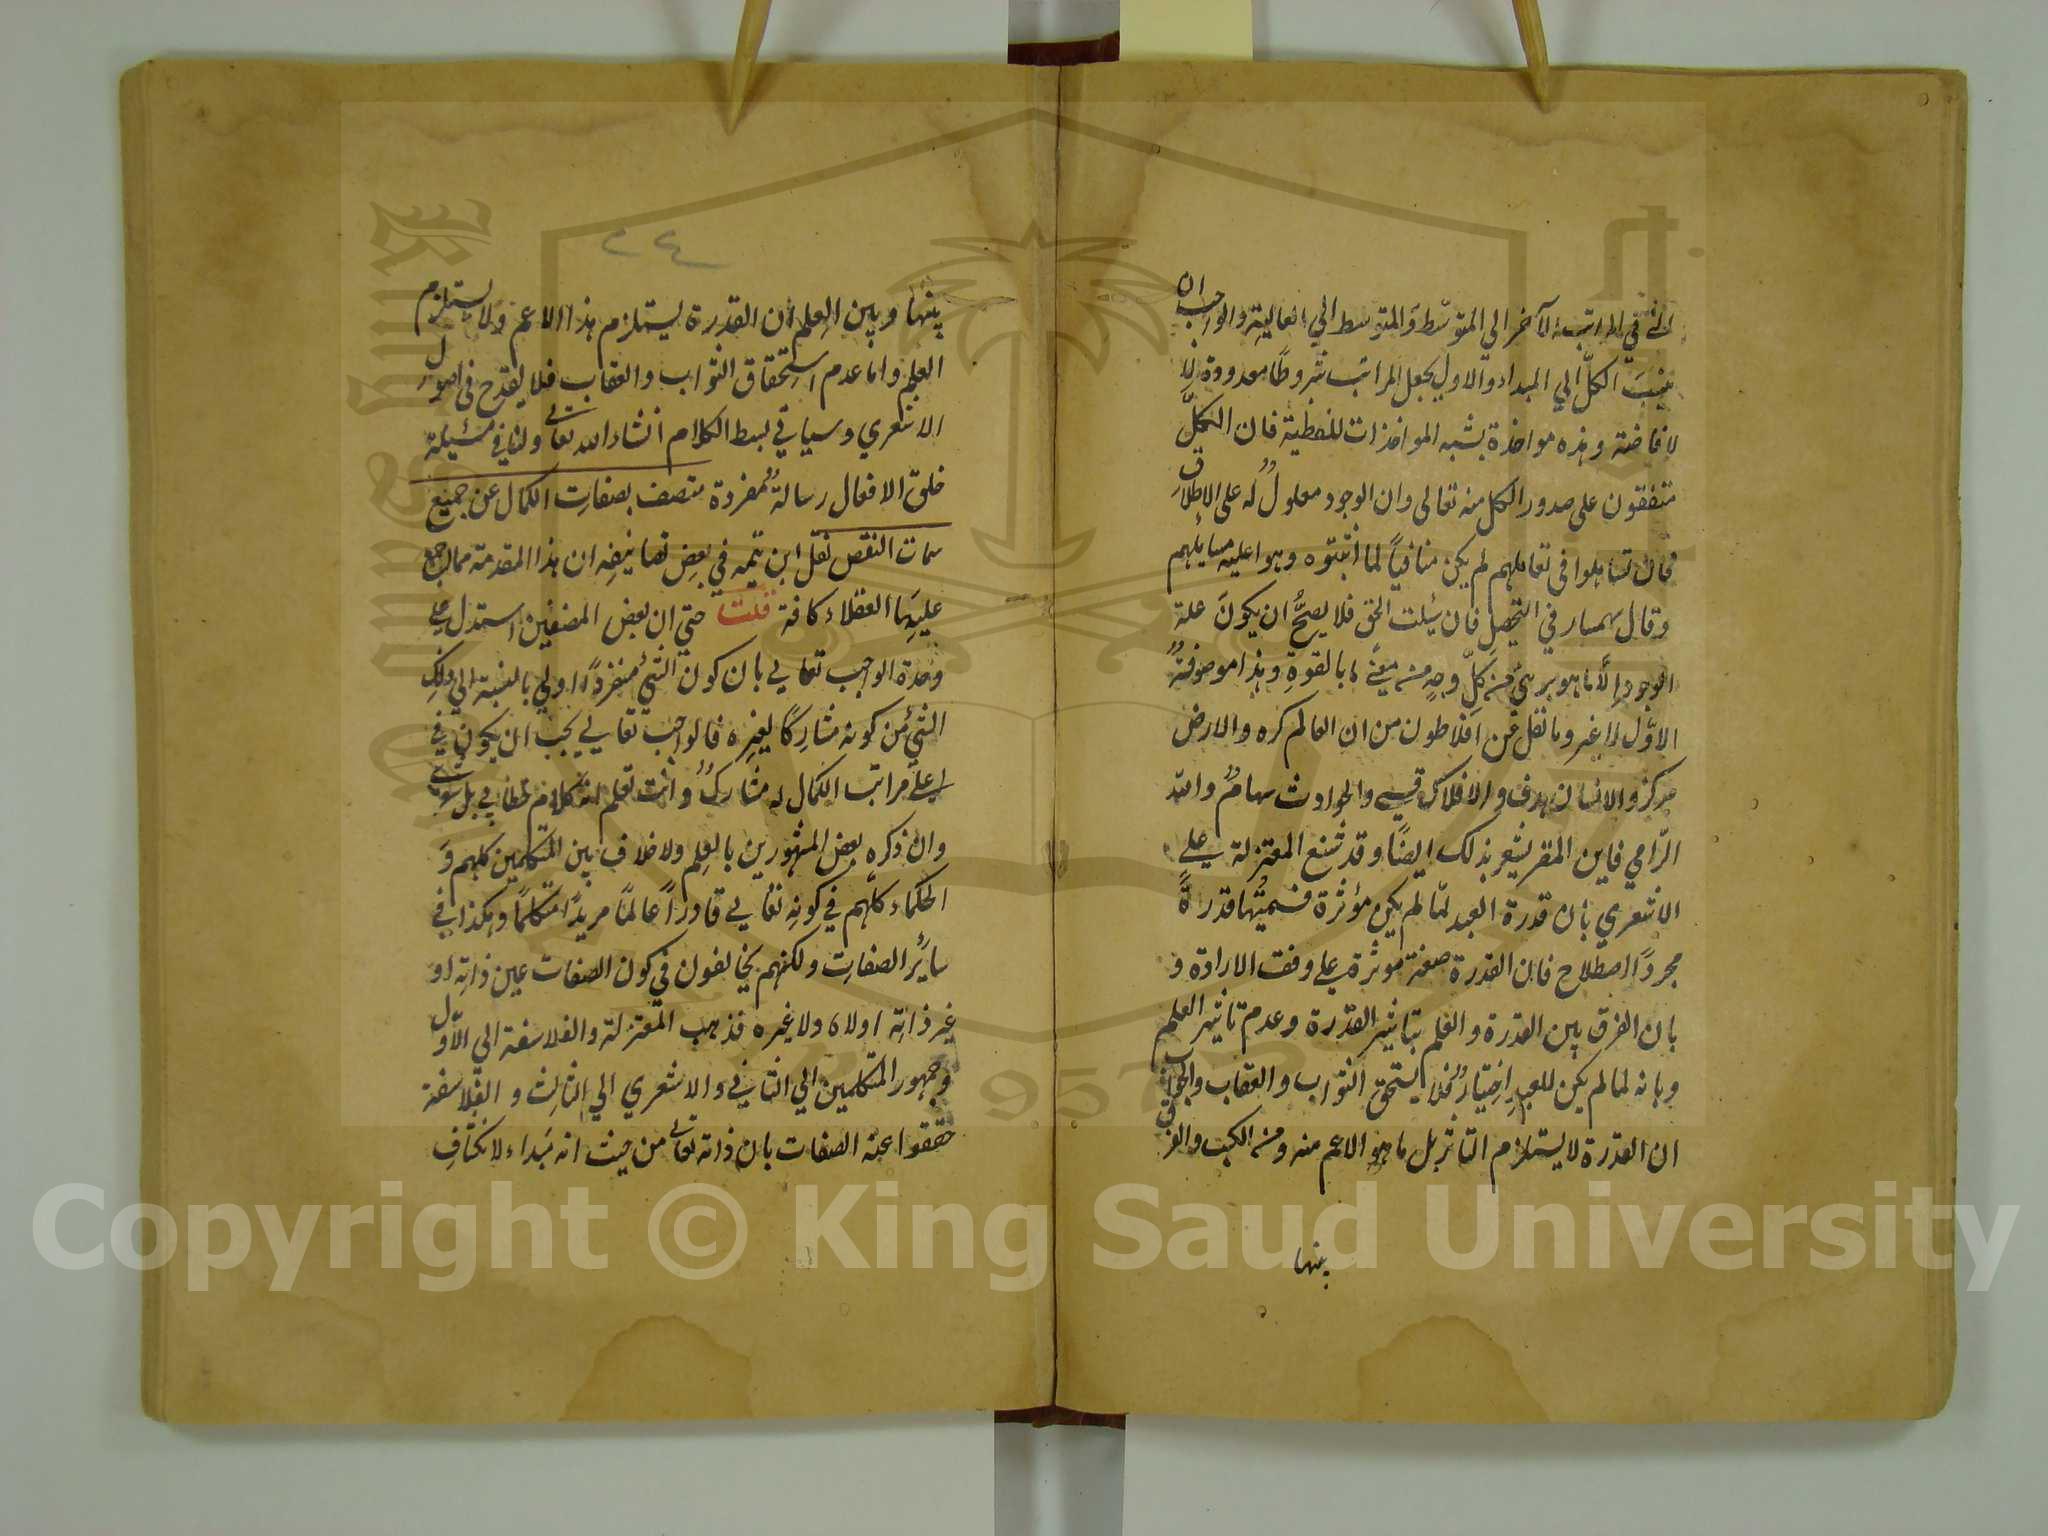 التي في المراتب الآخر الي المتوسّط والمتوسط الي العالية والواجب ان
ينسب الكلّ الي المبداء والاول يجعل المراتب شروطًا معدودة لا
لافاضة وهذه مواخذة يشبه المواخذات اللفظية فان الكلّ
متفقون على صدور الكل منه تعالى وان الوجود معلولٌ له على الاطلاق
فان تساهلوا في تعاملهم لم يكن منافياً لما اثبتوه وهوا عليه مسايلهم
وقال بهمنيار في التحصيل فان سئلت الحق فلا يصحُّ ان يكونَ علة
الوجود إلّا ما هو بريئ من كلّ وجهٍ من معنًى ما بالقوةِ وهذا موصوفةٌ
الاوّل لا غير وما نقل عن افلاطون من ان العالم كره والارض
مركز والانسان هدف والافلاك قسي والحوادث سهامٌ والله
الرّامي فاين المفر يشعر بذلك ايضًا وقد شنع المعتزلة علي
الاشعري بان قدرة العبد لمّا لم يكن مؤثرة فسميتُها قدرةً
مجردً اصطلاح فان القدرة صفة موثرة علي وفقت الارادة و
بان الفرق بين القدرة والعلم بتاثير القدرة وعدم تاثير العلم
وبانه لما لم يكن للعبدِ اختيارٌ فلا يستحق الثواب والعقاب والجواب
ان القدرة لا يستلزم التاثر بل ما هو الاعم منه ومن الكسب والفرق
بينها
٢٤
بينها وبين العلم ان القدرة يستلزم هذا الاعم ولا يستلزم
العلم واما عدم استحقاق الثواب والعقاب فلا يقدح في اصول
الاشعري وسياتي بسط الكلام انشاء الله تعالى ولنا في مسئيلة
خلق الافعال رسالةٌ مفردة متصف بصفات الكمال عن جميع
سمات النقص نقل ابن تيميه في بعض تصانيفه ان هذا المقدمة مما اجمع
عليها العقلاء كافة قلت حتي ان بعض المصنفين استدل علي
وحدة الواجب تعالي بان كون الشيئ منفردًا اولي بالنسبة الي ذلك
الشيئ من كونه مشاركًا لغيره فالواجب تعالي يجب ان يكون في
اعلي مراتب الكمال له مشاركٌ وانت تعلم انه كلام خطابي بل شعري
وان ذكره بعض المشهورين بالعلم ولا خلاف بين المتكلمين كلهم وَ
الحكماء كلّهم في كونه تعالي قادراً عالمًا مريدًا متكلمًا وهكذا في
سايرُ الصفات ولكنهم يخالفون في كون الصفات عين ذاته او
غير ذاته او لا ه ولا غيره فذهب المعتزلة والفلاسفة الي الاوّل
وجمهور المتكلمين الي الثاني والاشعري الي الثالث و الفلاسفة
حققوا عينة الصفات بان ذاته تعالى من حيث انه مَبداء لانكشاف